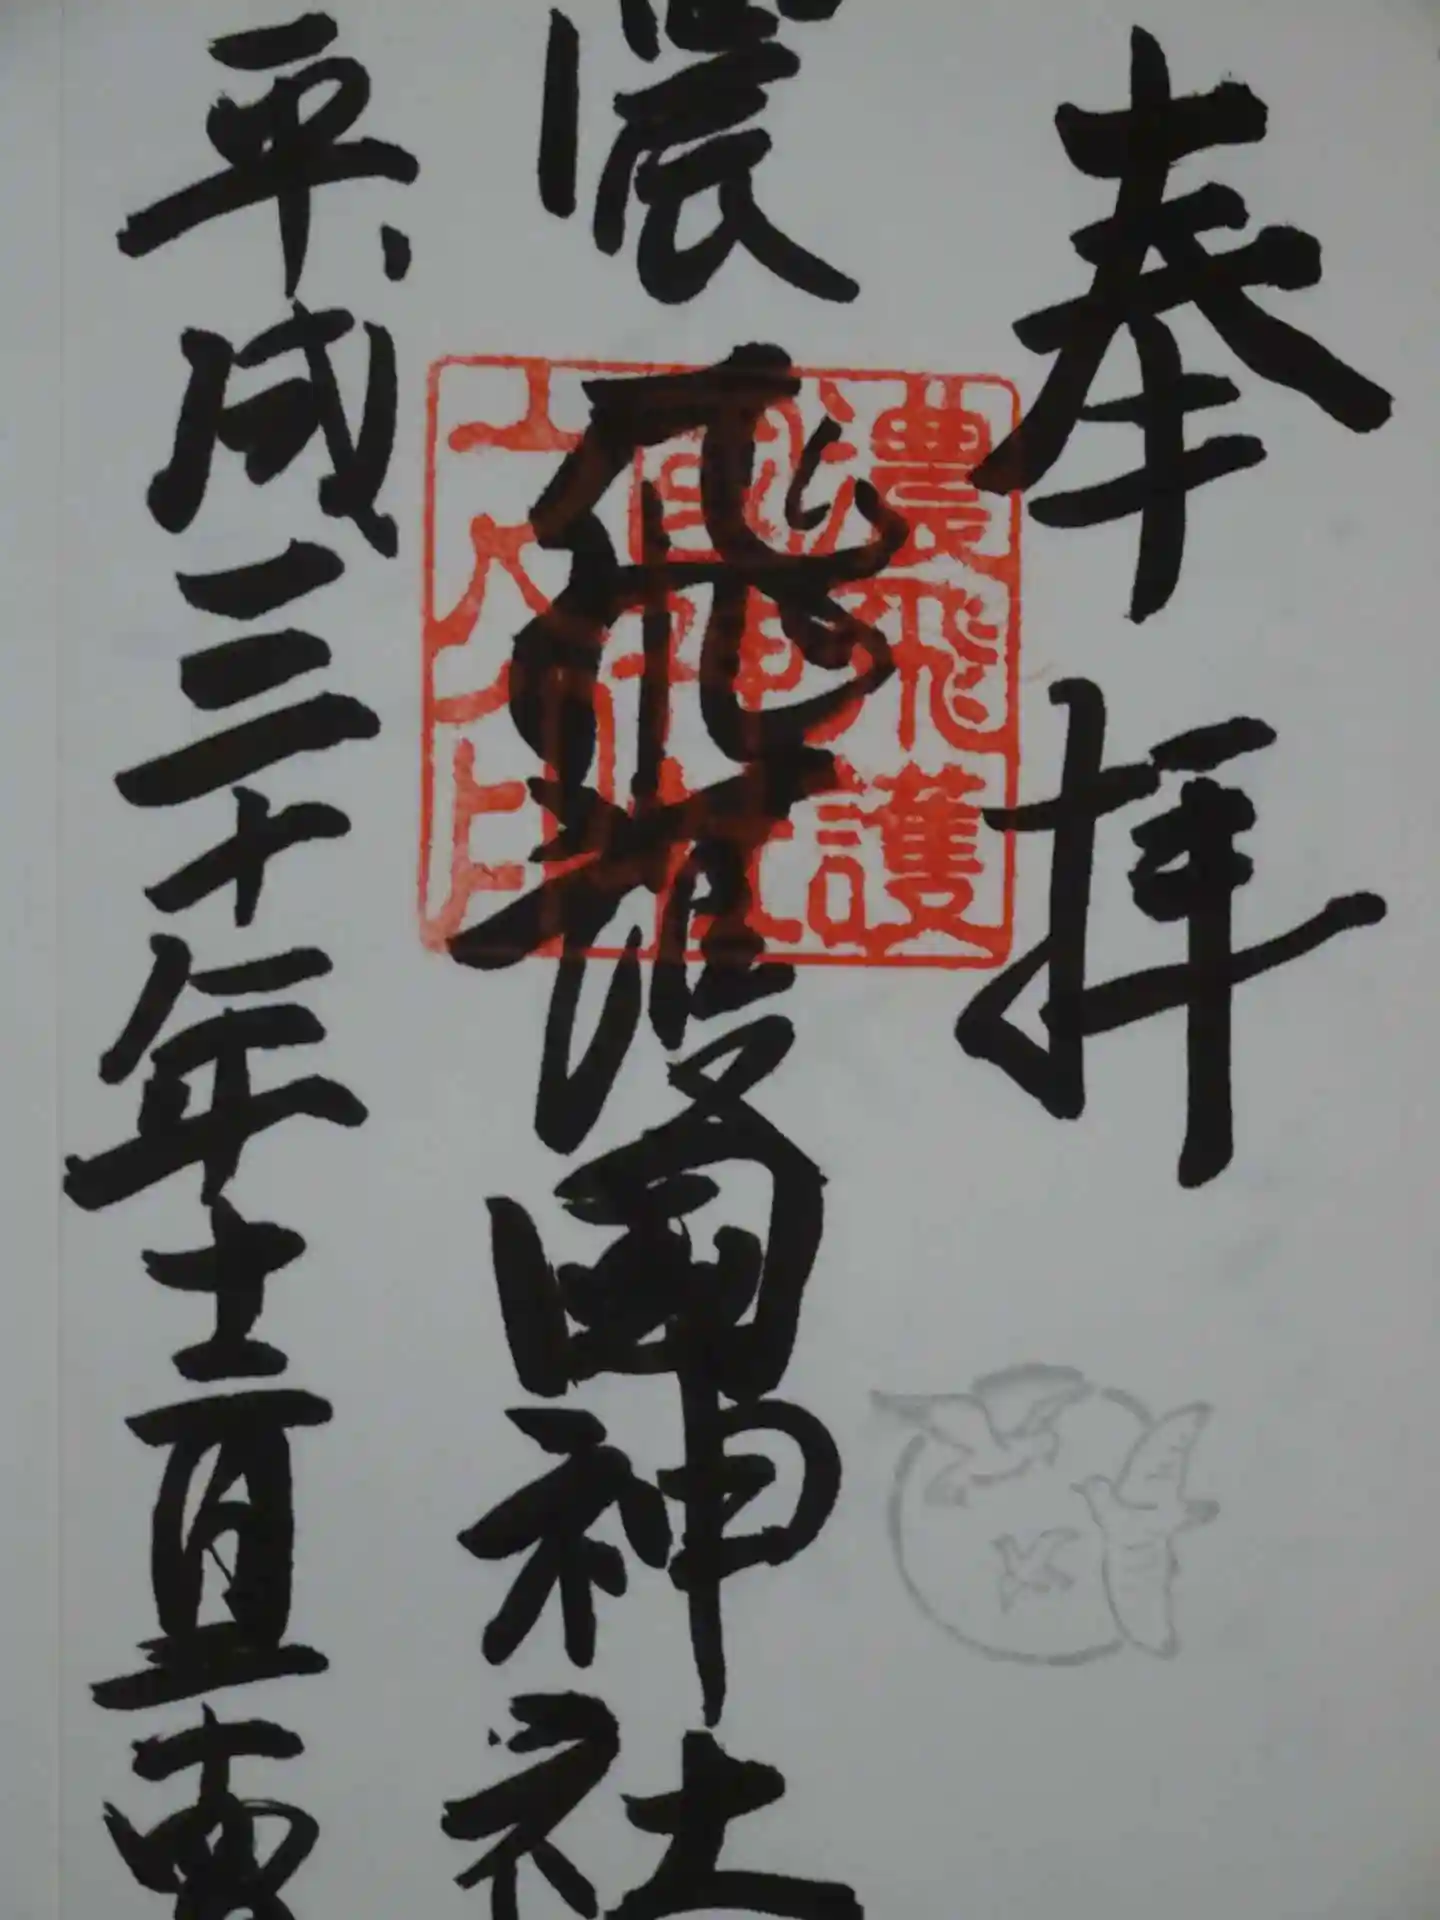 奉拝
濃飛護國神社
平成三十年
濃飛護國神社之印